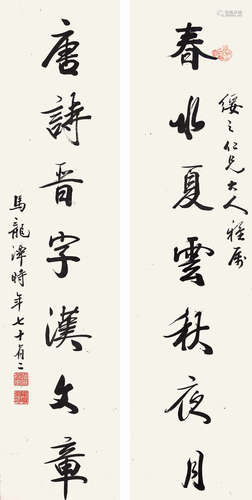 绥之仁兄大人雅属
春水夏雲秋夜月
唐詩晉字漢文章
馬龍潭時年七十有二